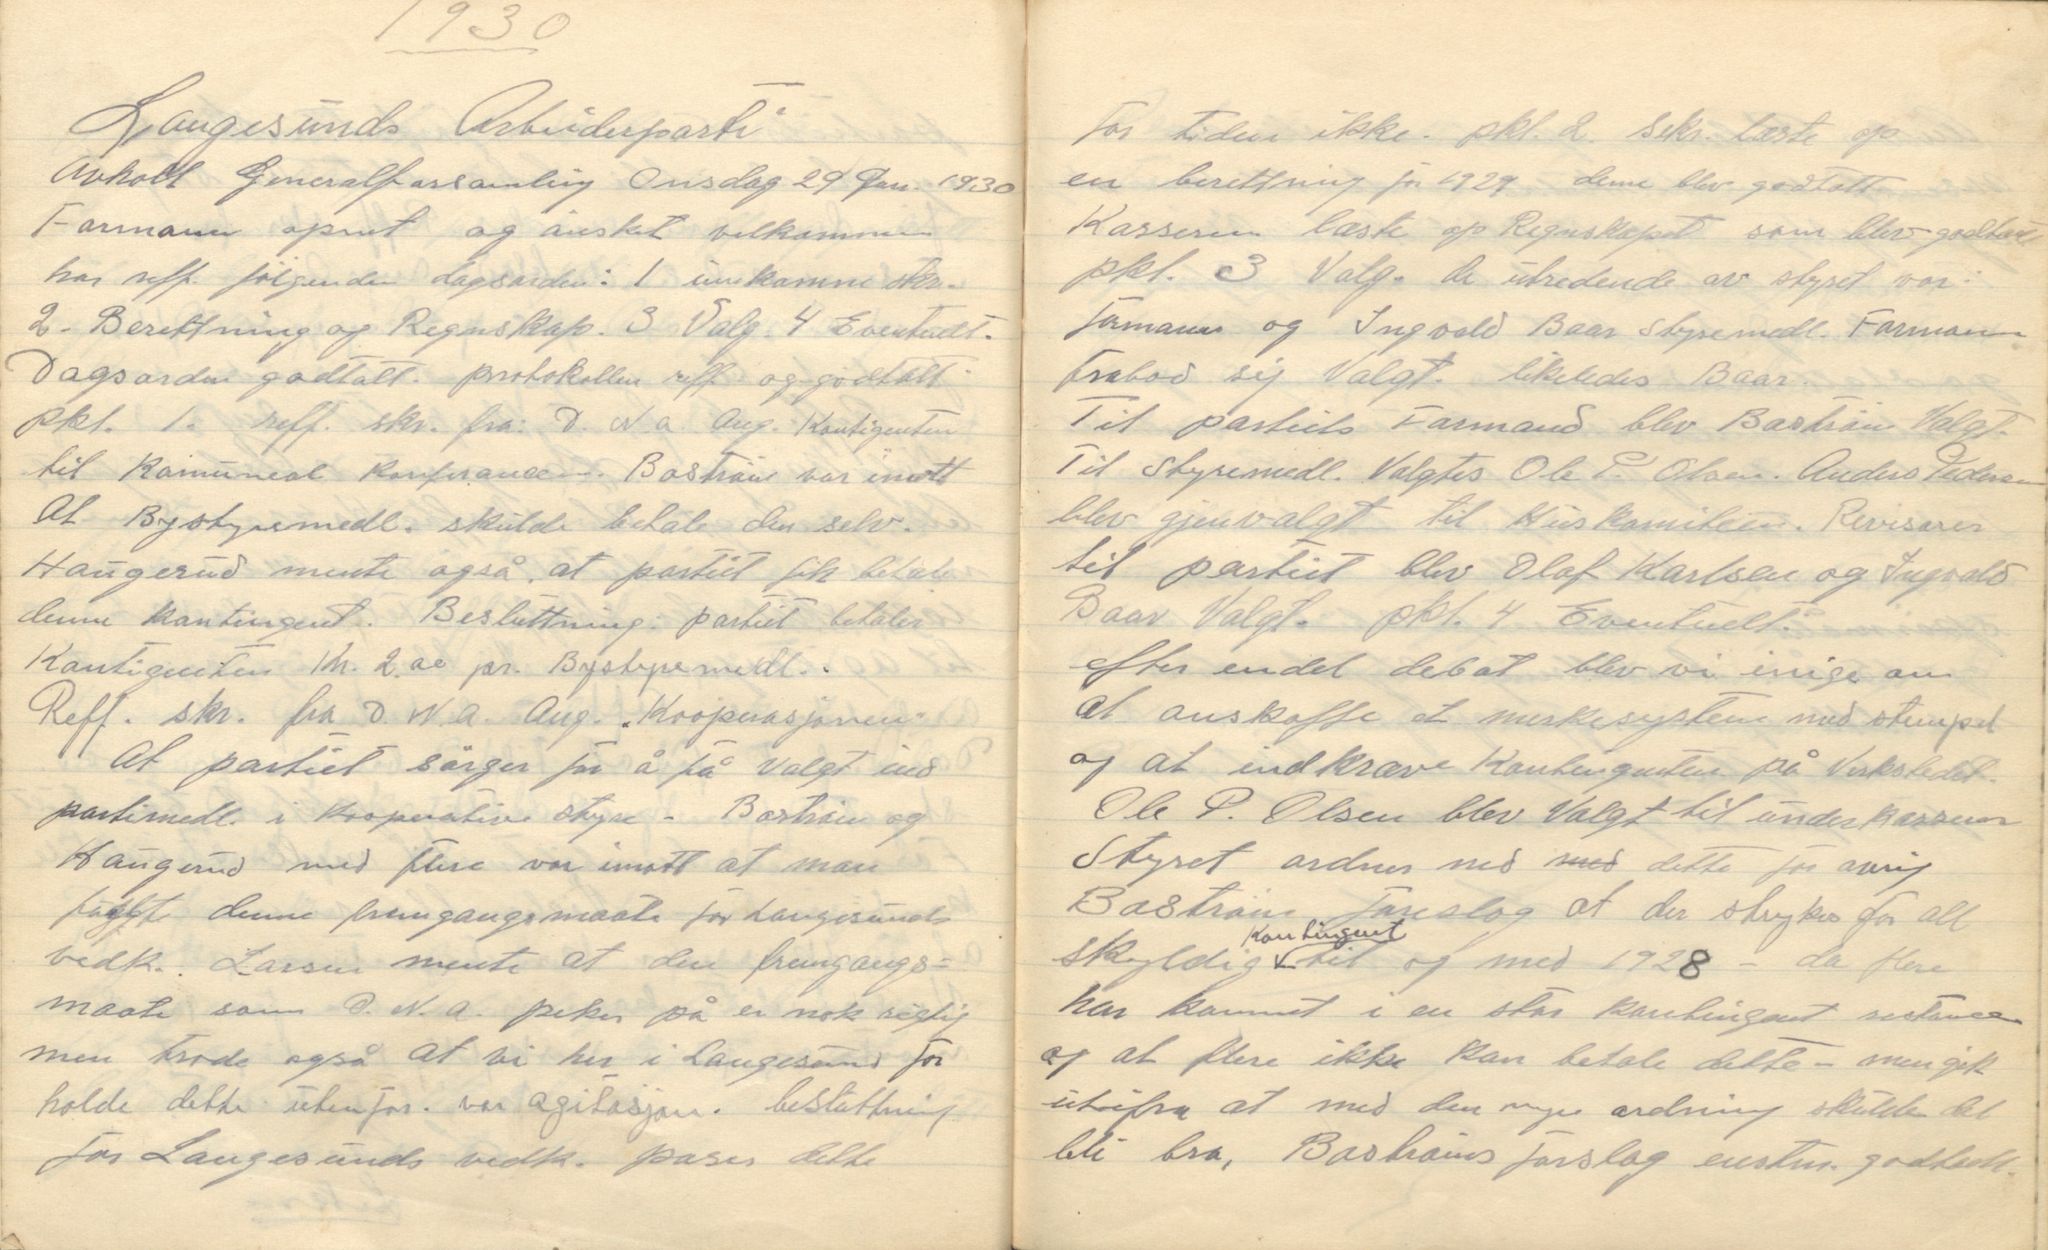 1930
Langesunds Arbeiderparti
Avholdt Generalforsamling Onsdag 29 Jan. 1930
Formann åpnet og ønsket velkommen
har reff. følgenden dagsorden: 1 innkomne skr.
2. Berettning og Regnskap. 3 Valg. 4 Eventuelt.
Dagsorden godtatt. protokollen reff og godtatt
pkt. 1. reff. skr. fra: D. N. A. Ang. Kontigenten
til Komuneal konferancen. Bostrøm var imott
At Bystyremedl. skulde betale den selv.
Haugerud mente også at partiet fik betale
denne kontingent. Besluttning: partiet betaler
Kontigenten Kr. 2.00 pr. Bystyremedl.
Reff. skr. fra D. N. A. Ang. "Kooperasjonen"
At partiet sørger for å få valgt ind
partimedl. i Kooperative styre - Bostrøm og
Haugerud med flere var imott at man
fulgte denne fremgangsmaate for Langesunds
vedk. Larsen mente at den fremgangs=
maate som D. N. A. peker på er nok rigtig
men trode også at vi her i Langesund får
holde dette utenfor. vor agitasjon. besluttning
for Langesunds vedk. passer dette
for tiden ikke. pkt. 2. Sekr. læste op
en berettning for 1929 denne blev godtatt
Kasseren læste op Regnskapet som blev godtatt
pkt. 3 Valg. de utredende av styret var:
formann og Ingvald Baar Styremedl. Formann
frabod sig Valgt. likeledes Baar.
Til partiets Formand blev Bostrøm Valgt.
Til Styremedl. Valgtes Ole P. Olsen. Anders Pedersen
blev gjenvalgt til Huskomiteen. Revisorer
til partiet blev Olaf Karlsen og Ingvald
Baar Valgt. pkt. 4 Eventuelt.
efter endel debat blev vi enige om
at anskaffe et merkesystem med stempel
og at indkræve Kontingenten på Verkstedet.
Ole P. Olsen blev Valgt til underkasserer
Styret ordner med med dette for øvrig
Bostrøm foreslog at der strykes for all
Kontingent
skyldig til og med 1928 - da flere
har kommet i en stor kontingent restance
og at flere ikke kan betale dette - men gik
utifra at med den nye ordning skulde det
bli bra, Bostrøms forslag enstm. godtatt.